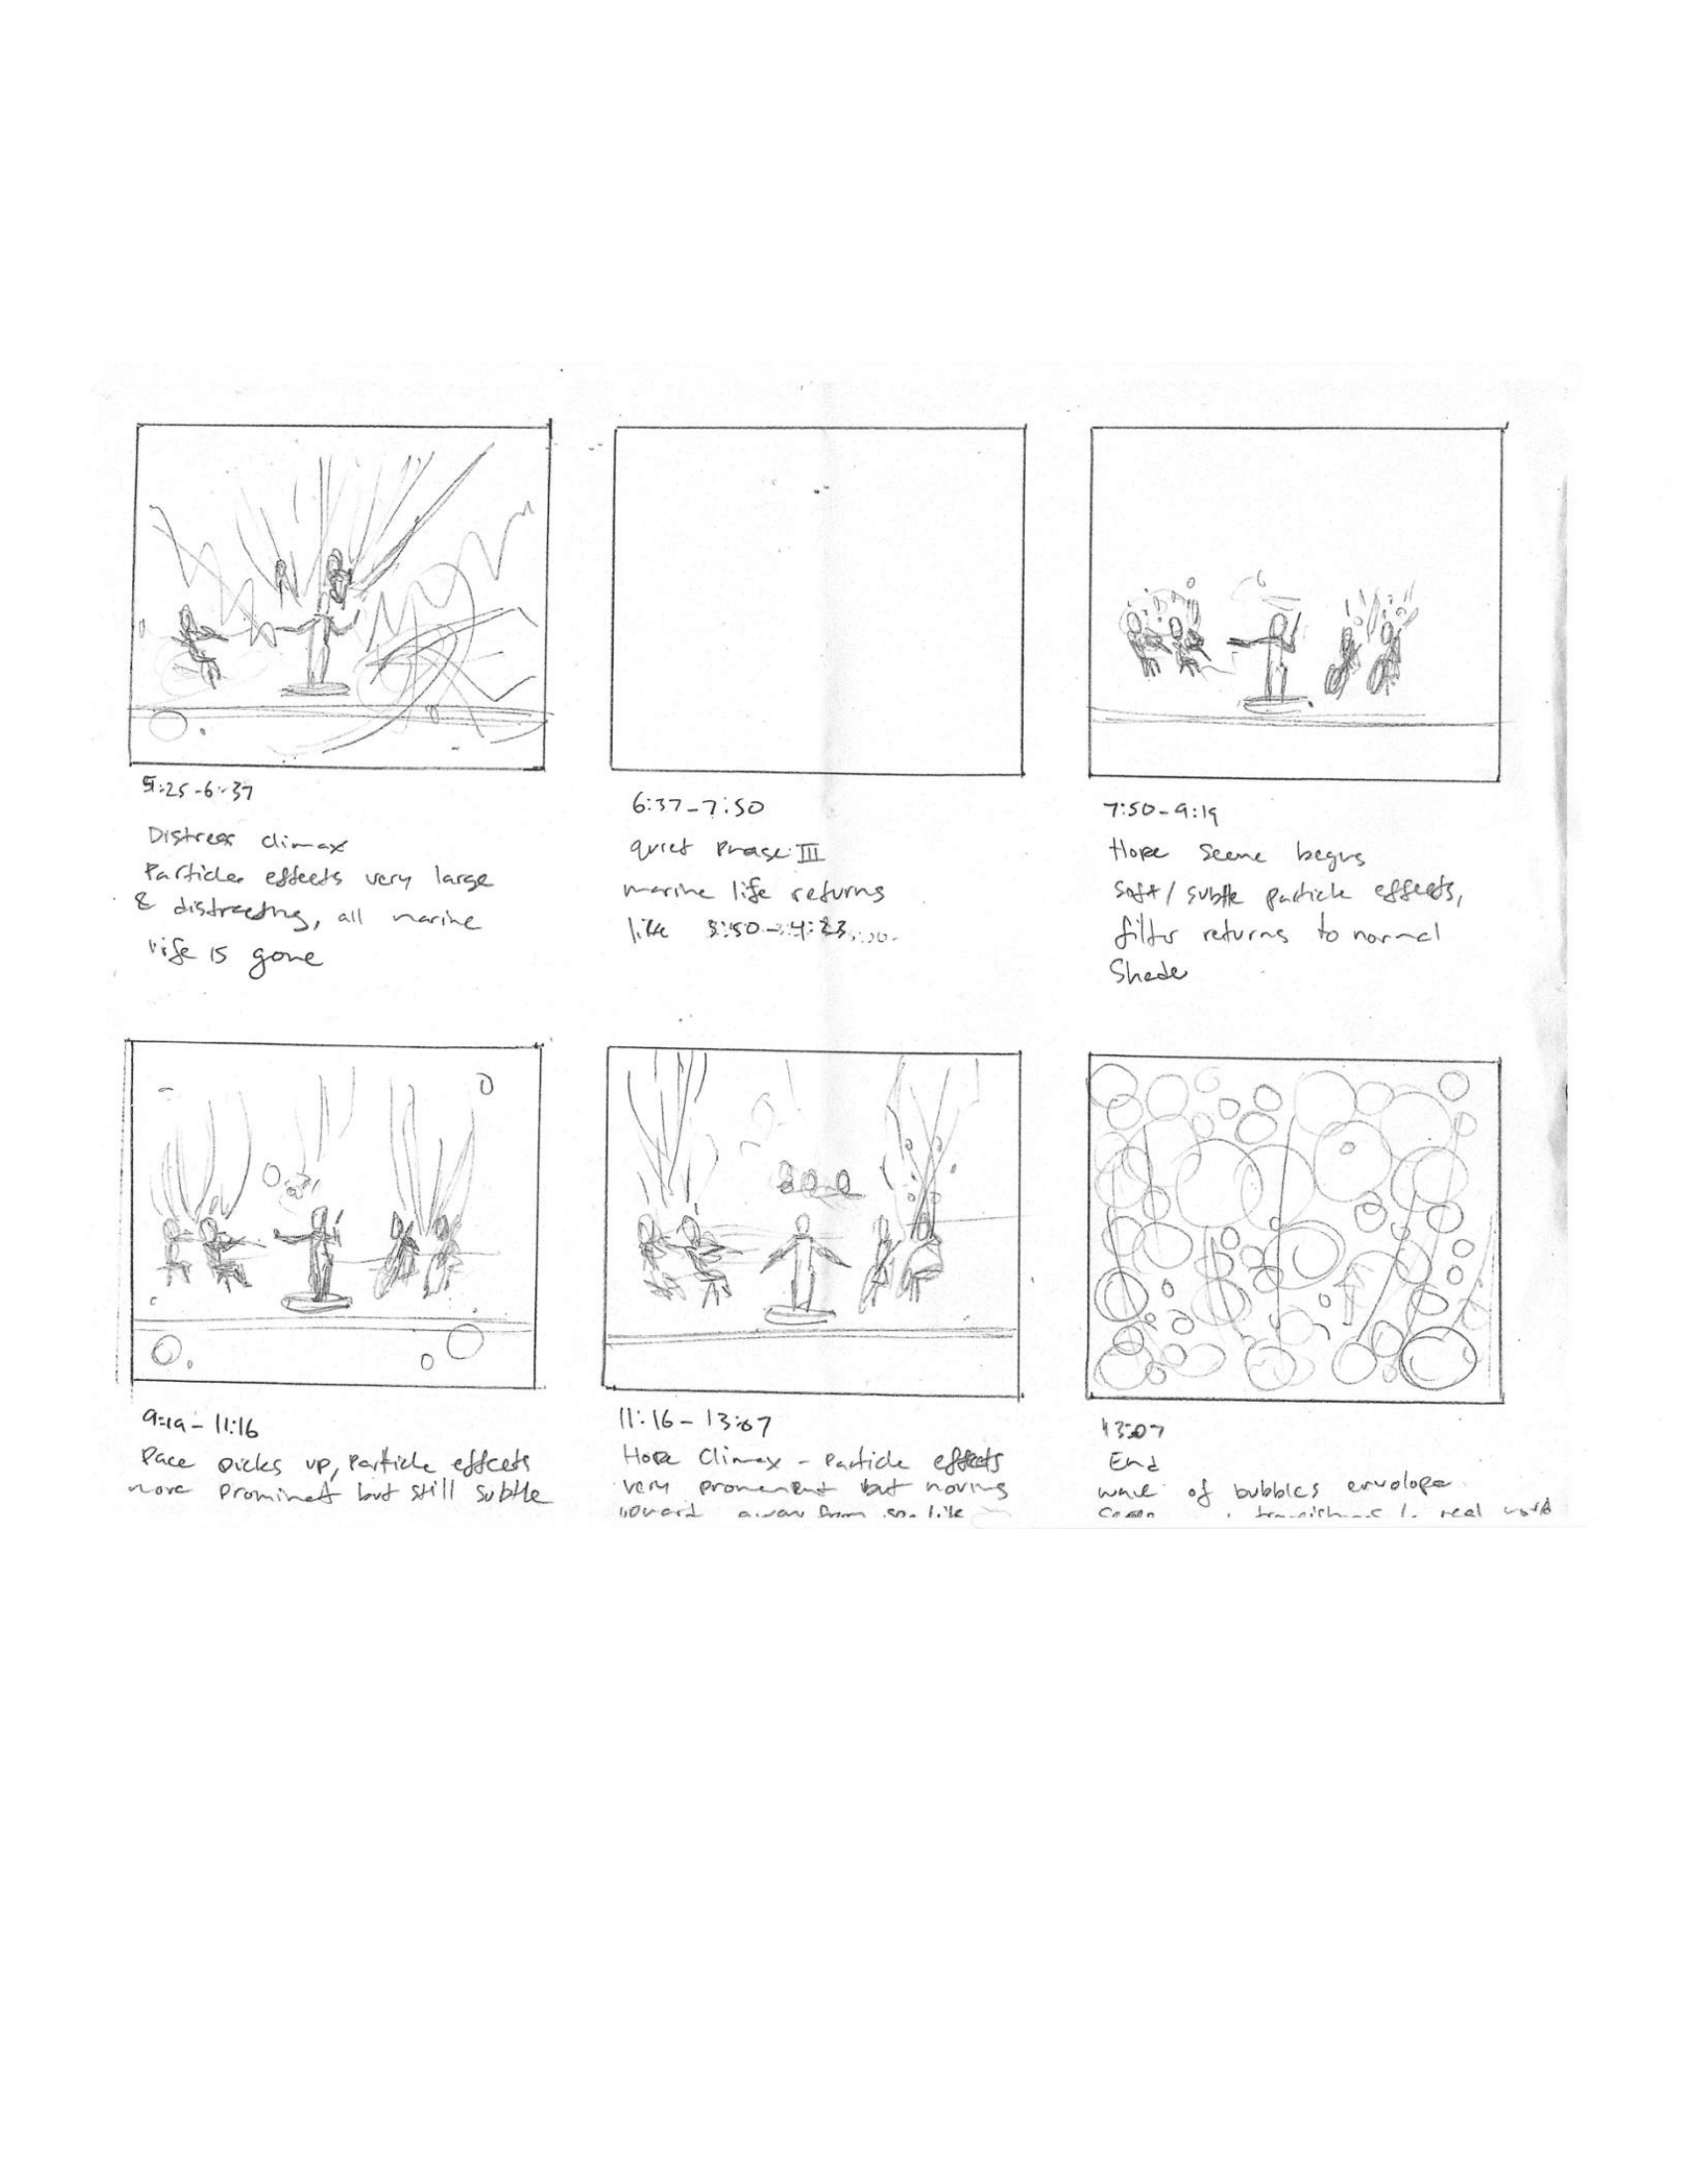 5:25-6:37
Distress climax
Particles effects very large
& distracting, all marine
life is gone
6:37-7:50
quiet Phase III
marine life returns
like 3:50-4:23
7:50-9:19
Hope Scene begins
soft/subtle particle effects,
filter returns to normal
Shade
9:19-11:16
Pace picks up, Particle effects
more prominent but still subtle
11:16-13:07
Hope Climax - Particle effects
very prominent but moving
away from
13:07
End
wave of bubbles envelope
real world